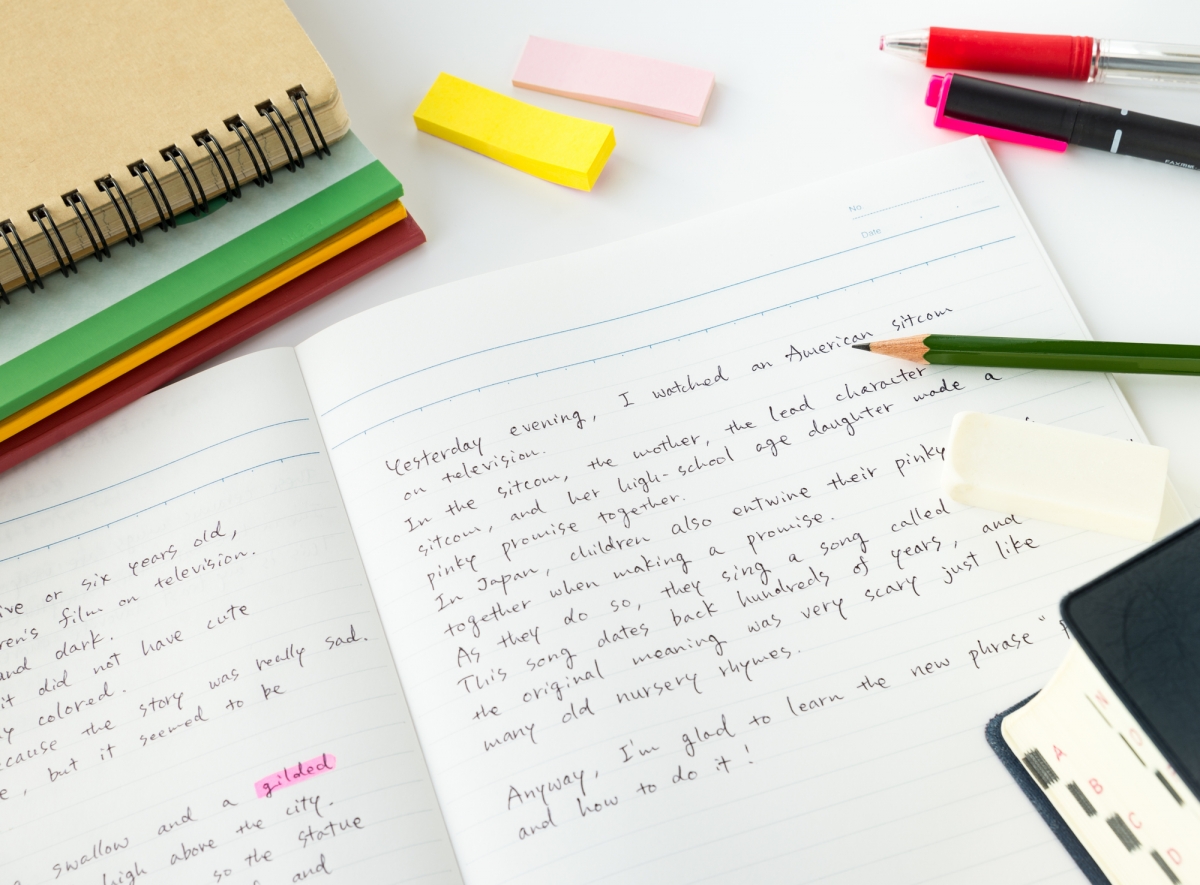 ive or six years old,
ren's film on television.
and dark.
it did not have cute
y colored.
cause the story was really sad.
e, but it seemed to be
swallow and a gilded
high above the city.
so the statue
and
No.
Date
Yesterday evening, I watched an American sitcom
on television.
In the sitcom, the mother, the lead character
sitcom, and her high-school age daughter made a
pinky promise together.
In Japan, children also entwine their pinky
together when making a promise.
As they do so, they sing a song called
This song dates back hundreds of years, and
the original meaning was very scary just like
many old nursery rhymes.
Anyway, I'm glad to learn the new phrase "
and how to do it!
A
B
C
D